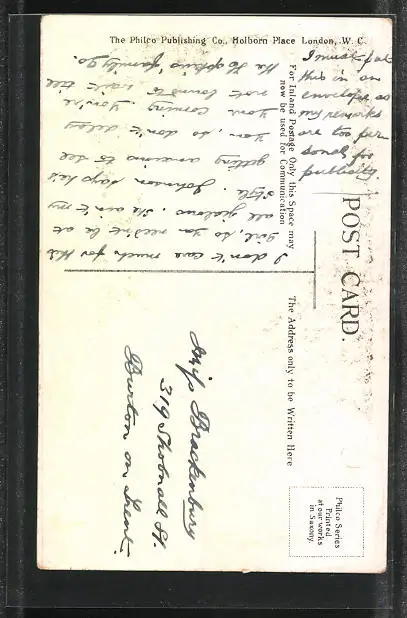 The Philco Publishing Co., Holborn Place London, W. C.
POST CARD.
For Inland Postage Only this Space may
now be used for Communication
The Address only to be Written Here
Philco Series
Printed
at our works
in Saxony.
I don't care much for this
girl, so you needn't be at
all jealous. She ain't my
style. Johnson says he's
getting anxious to see
you, so don't delay
your coming. You're
not bound to wait till
the Hopkins' family go.
I must put
this in an
envelope as
my remarks
are too per
sonal for
publicity.
Miss Brackenbury
319 Shobnall St.
Burton on Trent.